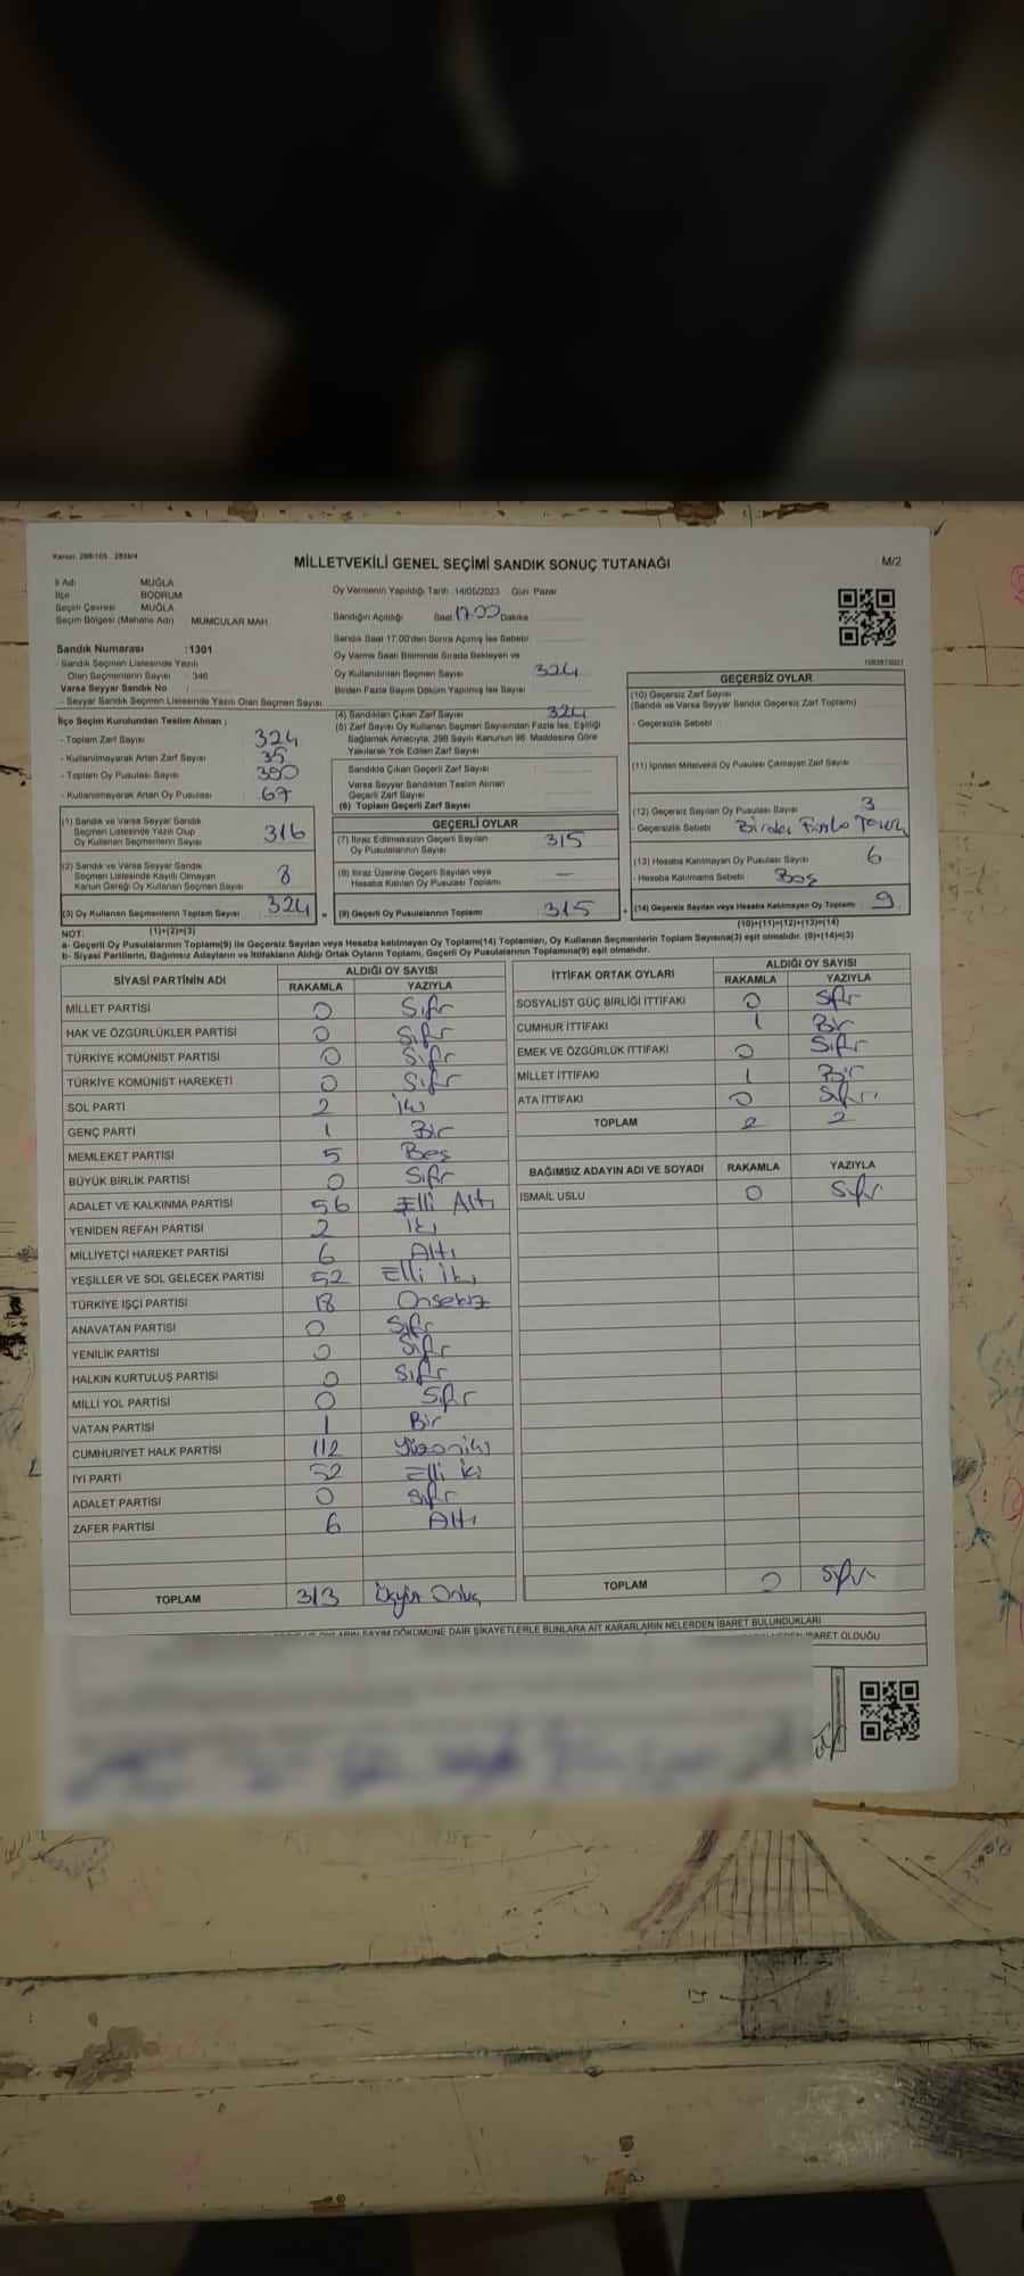 MİLLETVEKİLİ GENEL SEÇİMİ SANDIK SONUÇ TUTANAĞI
M/2
İl Adı MUĞLA
İlçe BODRUM
Seçim Çevresi MUĞLA
Seçim Bölgesi (Mahalle Adı) MUMCULAR MAH
Sandık Numarası : 1301
- Sandık Seçmen Listesinde Yazılı
Olan Seçmenlerin Sayısı : 346
Varsa Seyyar Sandık No
- Seyyar Sandık Seçmen Listesinde Yazılı Olan Seçmen Sayısı
Oy Vermenin Yapıldığı Tarih : 14/05/2023 Gün: Pazar
Sandığın Açıldığı Saat 17:00 Dakika
Sandık Saat 17.00'den Sonra Açılmış İse Sebebi
Oy Verme Saati Bitiminde Sırada Bekleyen ve
Oy Kullandırılan Seçmen Sayısı 324
Birden Fazla Sayım Döküm Yapılmış İse Sayısı
İlçe Seçim Kurulundan Teslim Alınan ;
- Toplam Zarf Sayısı 324
- Kullanılmayarak Artan Zarf Sayısı 35
- Toplam Oy Pusulası Sayısı 390
- Kullanılmayarak Artan Oy Pusulası 67
(1) Sandık ve Varsa Seyyar Sandık
Seçmen Listesinde Yazılı Olup
Oy Kullanan Seçmenlerin Sayısı 316
(2) Sandık ve Varsa Seyyar Sandık
Seçmen Listesinde Kayıtlı Olmayan
Kanun Gereği Oy Kullanan Seçmen Sayısı 8
(3) Oy Kullanan Seçmenlerin Toplam Sayısı 324
(1)+(2)=(3)
(4) Sandıktan Çıkan Zarf Sayısı 324
(5) Zarf Sayısı Oy Kullanan Seçmen Sayısından Fazla İse, Eşitliği
Sağlamak Amacıyla, 298 Sayılı Kanunun 98. Maddesine Göre
Yakılarak Yok Edilen Zarf Sayısı
Sandıkta Çıkan Geçerli Zarf Sayısı
Varsa Seyyar Sandıktan Teslim Alınan
Geçerli Zarf Sayısı
(6) Toplam Geçerli Zarf Sayısı
GEÇERLİ OYLAR
(7) İtiraz Edilmeksizin Geçerli Sayılan
Oy Pusulalarının Sayısı 315
(8) İtiraz Üzerine Geçerli Sayılan veya
Hesaba Katılan Oy Pusulası Toplamı —
(9) Geçerli Oy Pusulalarının Toplamı 315
GEÇERSİZ OYLAR
(10) Geçersiz Zarf Sayısı
(Sandık ve Varsa Seyyar Sandık Geçersiz Zarf Toplamı)
- Geçersizlik Sebebi
(11) İçinden Milletvekili Oy Pusulası Çıkmayan Zarf Sayısı
(12) Geçersiz Sayılan Oy Pusulası Sayısı 3
- Geçersizlik Sebebi
(13) Hesaba Katılmayan Oy Pusulası Sayısı 6
- Hesaba Katılmama Sebebi Boş
(14) Geçersiz Sayılan veya Hesaba Katılmayan Oy Toplamı 9
(10)+(11)+(12)+(13)=(14)
NOT:
a- Geçerli Oy Pusulalarının Toplamı(9) ile Geçersiz Sayılan veya Hesaba katılmayan Oy Toplamı(14) Toplamları, Oy Kullanan Seçmenlerin Toplam Sayısına(3) eşit olmalıdır. (9)+(14)=(3)
b- Siyasi Partilerin, Bağımsız Adayların ve İttifakların Aldığı Ortak Oyların Toplamı, Geçerli Oy Pusulalarının Toplamına(9) eşit olmalıdır.
SİYASİ PARTİNİN ADI ALDIĞI OY SAYISI
RAKAMLA YAZIYLA
MİLLET PARTİSİ 0 Sıfır
HAK VE ÖZGÜRLÜKLER PARTİSİ 0 Sıfır
TÜRKİYE KOMÜNİST PARTİSİ 0 Sıfır
TÜRKİYE KOMÜNİST HAREKETİ 0 Sıfır
SOL PARTİ 2 İki
GENÇ PARTİ 1 Bir
MEMLEKET PARTİSİ 5 Beş
BÜYÜK BİRLİK PARTİSİ 0 Sıfır
ADALET VE KALKINMA PARTİSİ 56 Elli Altı
YENİDEN REFAH PARTİSİ 2 İki
MİLLİYETÇİ HAREKET PARTİSİ 6 Altı
YEŞİLLER VE SOL GELECEK PARTİSİ 52 Elli İki
TÜRKİYE İŞÇİ PARTİSİ 18 Onsekiz
ANAVATAN PARTİSİ 0 Sıfır
YENİLİK PARTİSİ 0 Sıfır
HALKIN KURTULUŞ PARTİSİ 0 Sıfır
MİLLİ YOL PARTİSİ 0 Sıfır
VATAN PARTİSİ 1 Bir
CUMHURİYET HALK PARTİSİ 112 Yüzoniki
İYİ PARTİ 52 Elli iki
ADALET PARTİSİ 0 Sıfır
ZAFER PARTİSİ 6 Altı
TOPLAM 313 Üçyüz Onüç
İTTİFAK ORTAK OYLARI ALDIĞI OY SAYISI
RAKAMLA YAZIYLA
SOSYALİST GÜÇ BİRLİĞİ İTTİFAKI 0 Sıfır
CUMHUR İTTİFAKI 1 Bir
EMEK VE ÖZGÜRLÜK İTTİFAKI 0 Sıfır
MİLLET İTTİFAKI 1 Bir
ATA İTTİFAKI 0 Sıfır
TOPLAM 2 2
BAĞIMSIZ ADAYIN ADI VE SOYADI RAKAMLA YAZIYLA
İSMAİL USLU 0 Sıfır
TOPLAM 0 Sıfır
SAYIM DÖKÜMÜNE DAİR ŞİKAYETLERLE BUNLARA AİT KARARLARIN NELERDEN İBARET BULUNDUKLARI
İBARET OLDUĞU